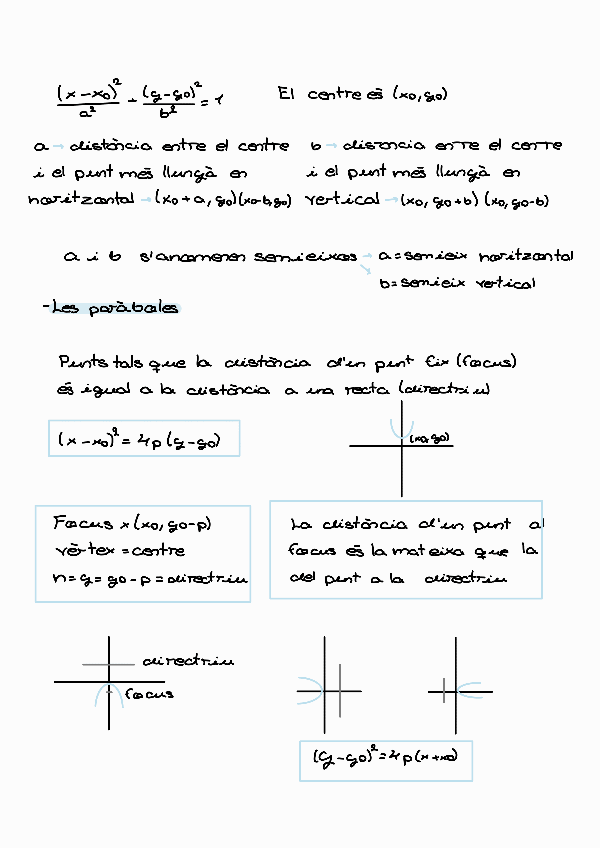 (x-x0)²/a² + (y-y0)²/b² = 1 El centre és (x0,y0)
a → distància entre el centre
i el punt més llunyà en
horitzontal → (x0+a, y0)(x0-b,y0)
b → distància entre el centre
i el punt més llunyà en
vertical → (x0, y0+b) (x0, y0-b)
a i b s'anomenen semieixos → a=semieix horitzontal
b=semieix vertical
-Les paràboles
Punts tals que la distància d'un punt fix (focus)
és igual a la distància a una recta (directriu)
(x-x0)²=4p(y-y0)
(x0,y0)
Focus x (x0, y0-p)
vèrtex = centre
n=y= y0-p = directriu
La distància d'un punt al
focus és la mateixa que la
del punt a la directriu
directriu
focus
(y-y0)²=4p(x+x0)